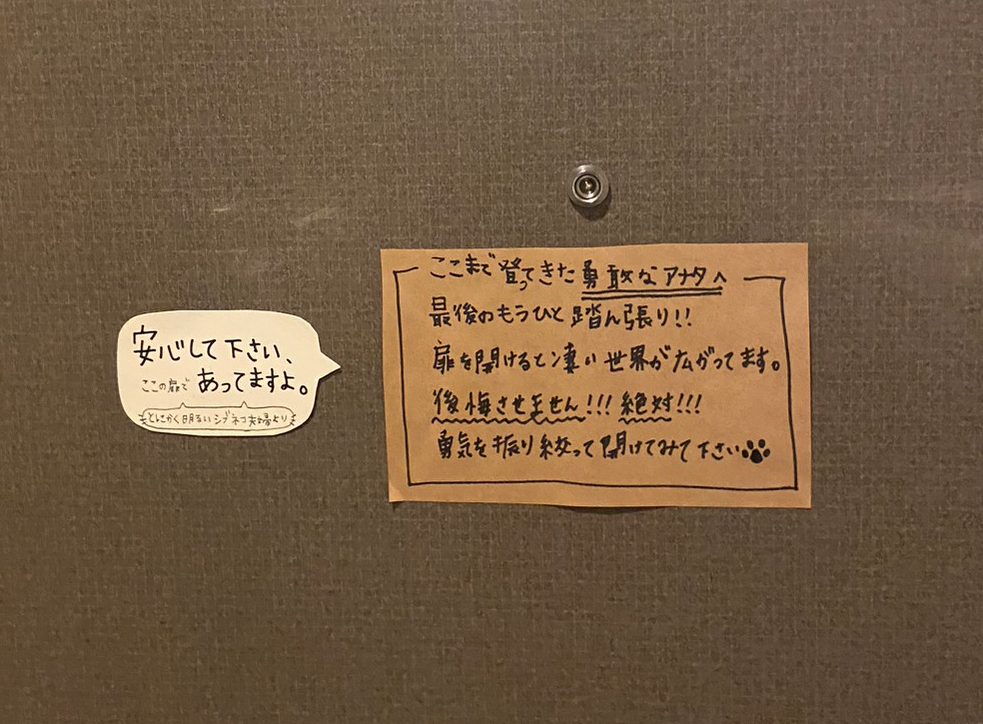 安心して下さい、
ここの扉で あってますよ。
とにかく明るいシブネコ夫婦より
ここまで登ってきた勇敢なアナタへ
最後のもうひと踏ん張り!!
扉を開けると凄い世界が広がってます。
後悔させません!!! 絶対!!!
勇気を振り絞って開けてみて下さい